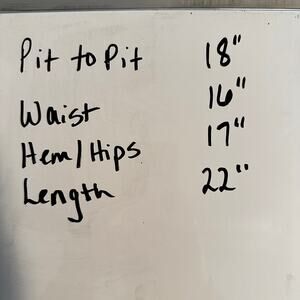 Pit to Pit 18"
Waist 16"
Hem/Hips 17"
Length 22"